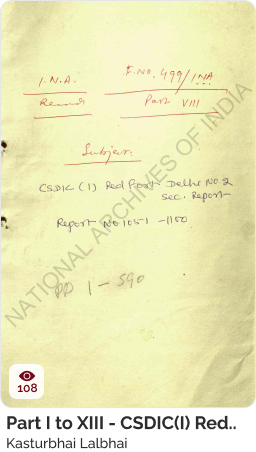 I.N.A.
F.NO. 499/INA
Records
Part VIII
Subject.
CSDIC (I) Red Fort Delhi No 2
sec. Report
Report No 1051 - 1100
PP 1 - 590
NATIONAL ARCHIVES OF INDIA
108
Part I to XIII - CSDIC(I) Red..
Kasturbhai Lalbhai